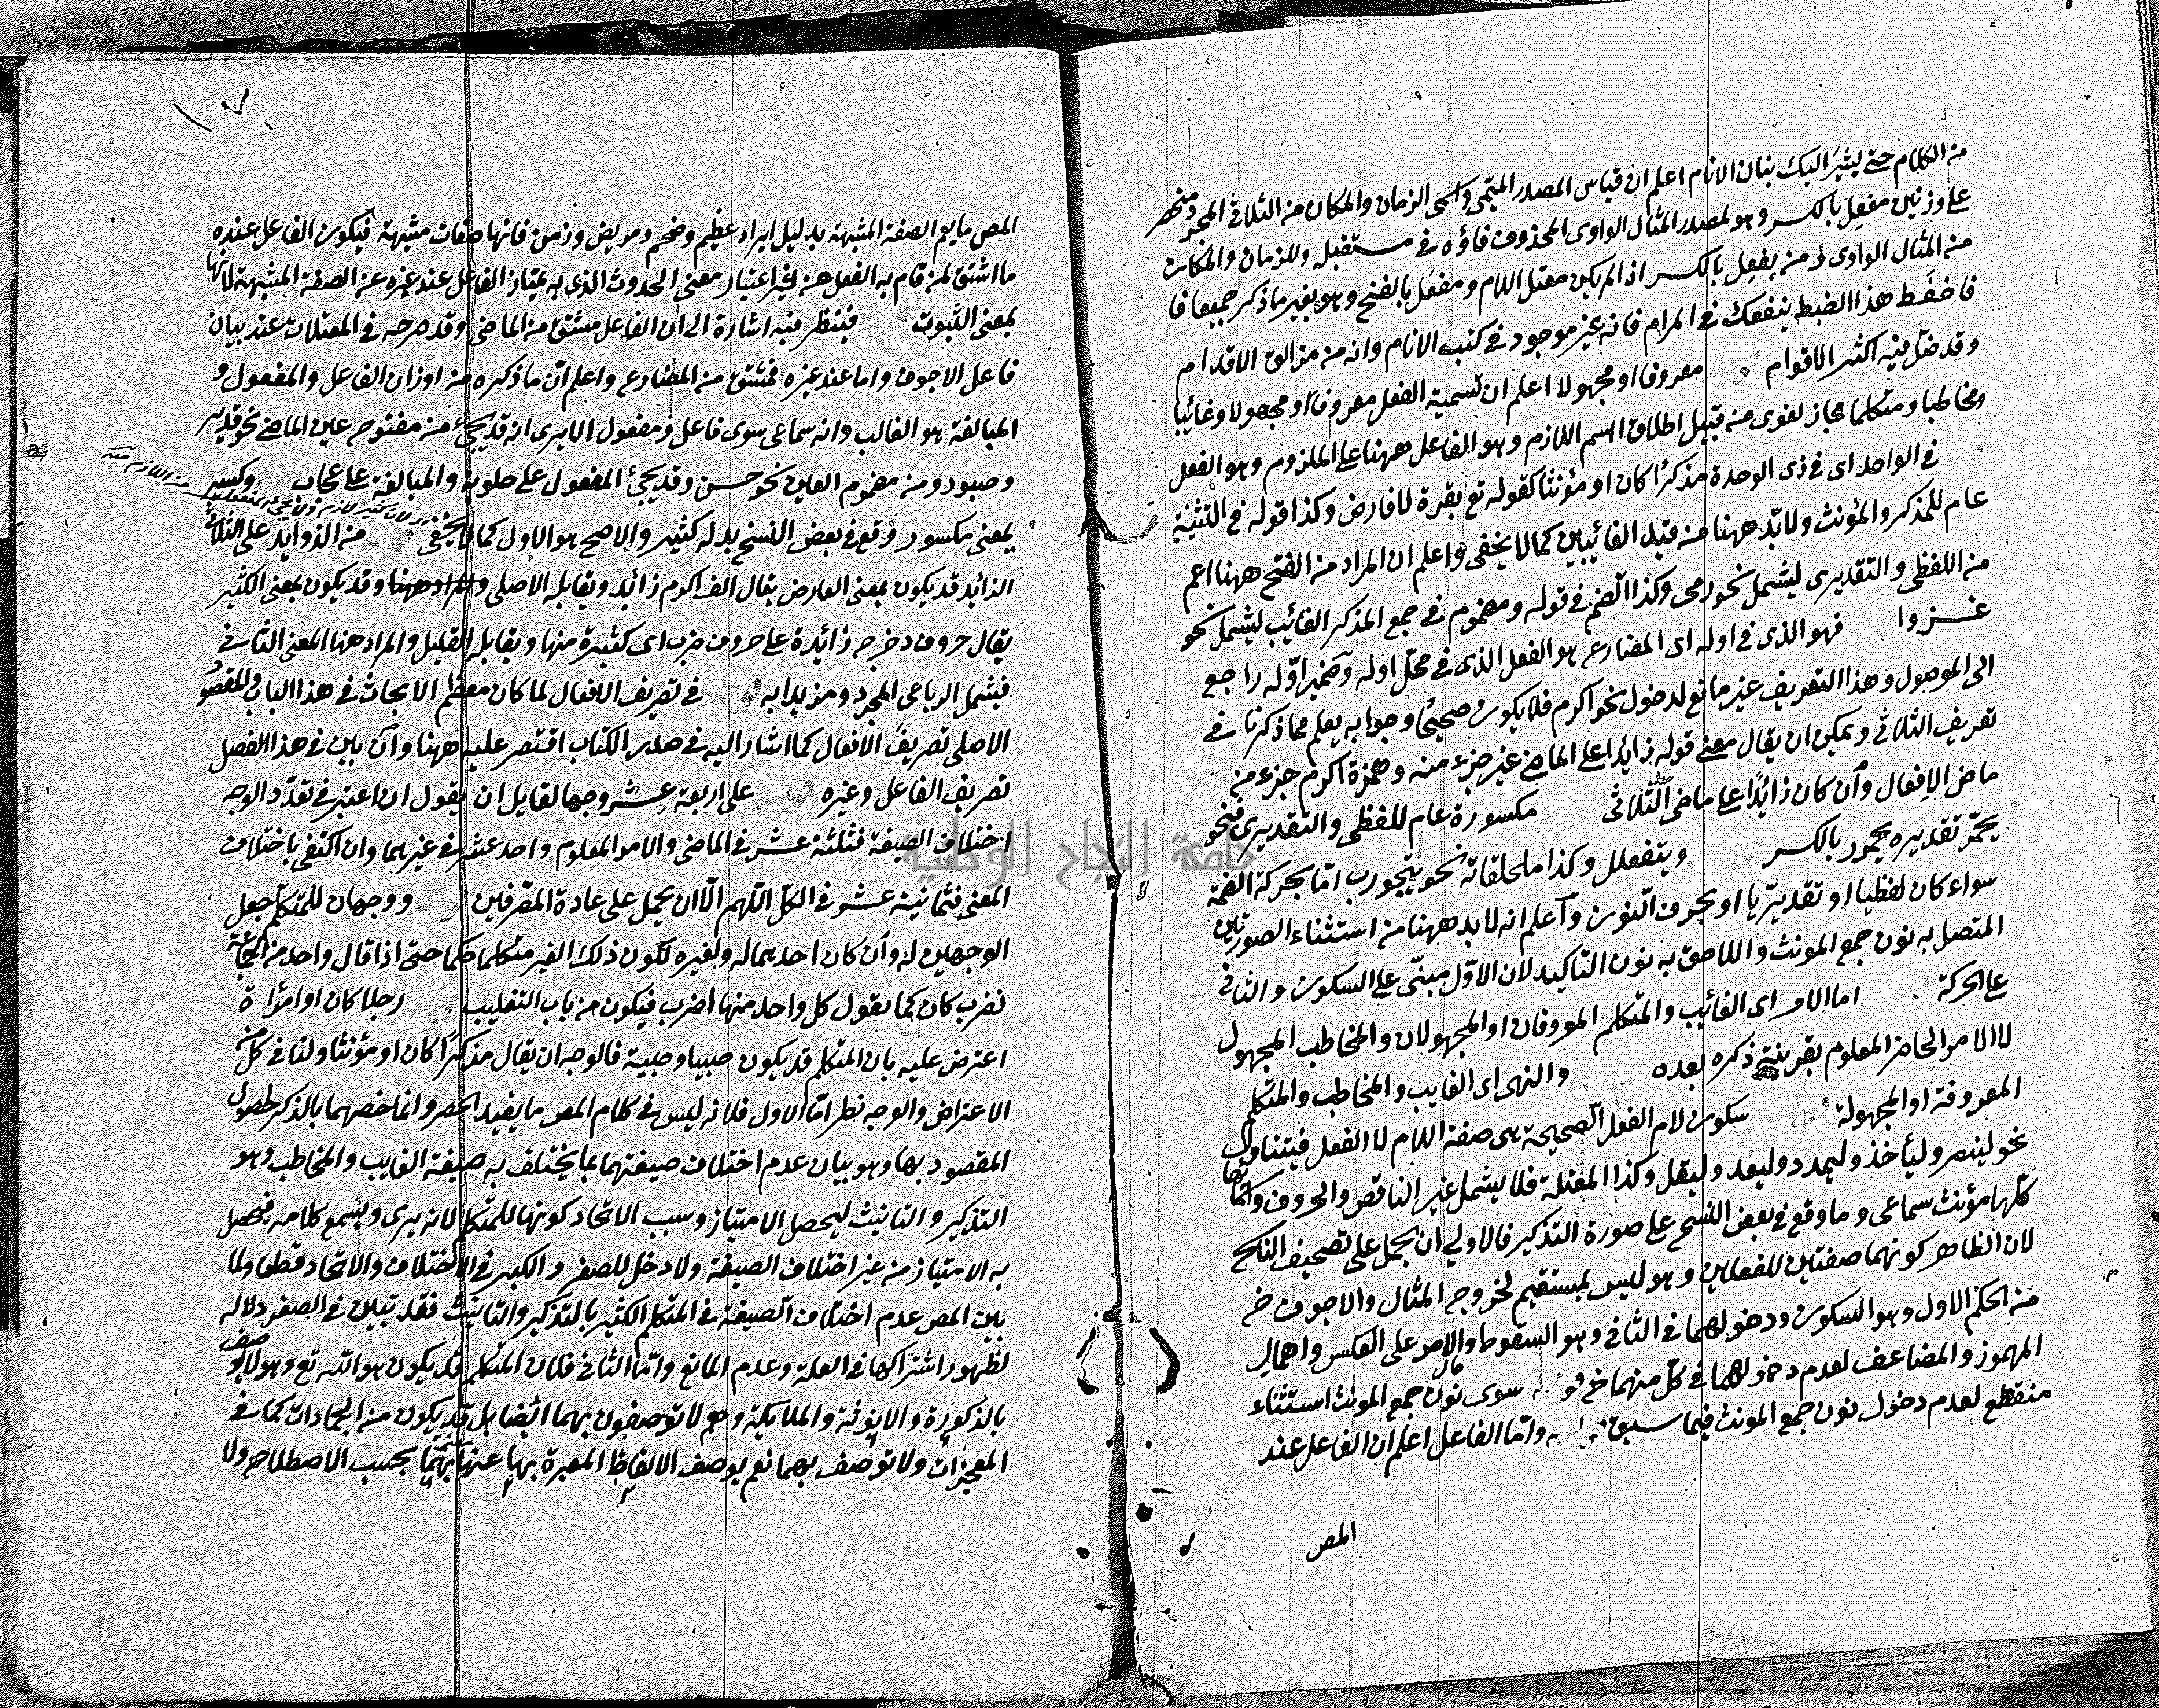 من الكلام حتى يشير اليك بنان الانام اعلم ان قياس المصدر الميمى واسمى الزمان والمكان من الثلاثى المجرد منحصر
على وزنين مفعل بالكسر وهو لمصدر المثال الواوى المحذوف فاؤه فى مستقبله وللزمان والمكان
من المثال الواوى و من يفعل بالكسر اذا لم يكن معتل اللام ومفعل بالفتح وهو بغير ما ذكر جميعا فا
فاحفظ هذا الضبط ينفعك فى المرام فانه غير موجود فى كتب الانام وانه من مزالق الاقدام
وقد ضل فيه اكثر الاقوام معروفا او مجهولا اعلم ان تسمية الفعل معروفا او مجهولا وغائبا
ومخاطبا ومتكلما مجاز لغوى من قبيل اطلاق اسم اللازم وهو الفاعل ههنا على الملزوم وهو الفعل
فى الواحد اى فى ذى الوحدة مذكرا كان او مؤنثا كقوله تع بقرة لا فارض وكذا قوله فى التثنية
عام للمذكر والمؤنث ولا بد ههنا من قيد الغائبين كما لا يخفى واعلم ان المراد من الفتح ههنا اعم
من اللفظى والتقديرى ليشمل نحو رمى وكذا الضم فى قوله ومضموم فى جمع المذكر الغائب ليشمل نحو
غزوا فهو الذى فى اوله اى المضارع هو الفعل الذى فى محل اوله وضمير اوله راجع
الى الموصول وهذا التعريف غير مانع لدخول نحو اكرم فلا يكون صحيحا وجوابه يعلم مما ذكرنا فى
تعريف الثلاثى ويمكن ان يقال معنى قوله زائدا على الماضى غير جزء منه وهمزة اكرم جزء من
ماض الافعال وان كان زائدا على ماضى الثلاثى مكسورة عام للفظى والتقديرى فنحو
يحمر تقديره يحمرر بالكسر ويتفعلل وكذا ملحقاته نحو يتجورب اما بحركة الضمة
سواء كان لفظيا او تقديريا او بحرف النون واعلم انه لا بد ههنا من استثناء الصورتين
المتصل به نون جمع المونث واللاحق به نون التاكيد لان الاول مبنى على السكون والثانى
على الحركة اما الامر اى الغائب والمتكلم المعروفان او المجهولان والمخاطب المجهول
لا الامر الحاضر المعلوم بقرينة ذكره بعده والنهى اى الغايب والمخاطب والمتكلم
المعروفة او المجهولة سكون لام الفعل الصحيحة هى صفة اللام لا الفعل فيتناول
نحو لينصر وليأخذ وليمدد وليعد وليقل وكذا المعتلة فلا يشمل غير الناقص والحروف واسماؤها
كلها مؤنث سماعى وما وقع فى بعض النسخ على صورة التذكير فالاولى ان يحمل على تصحيف الناسخ
لان الظاهر كونهما صفتين للفعلين وهو ليس بمستقيم لخروج المثال والاجوف ح
من الحكم الاول وهو السكون ودخولهما فى الثانى وهو السقوط والامر على العكس واهمال
المهموز والمضاعف لعدم دخولهما فى كل منهما ح سوى نون جمع المونث استثناء
منقطع لعدم دخول نون جمع المونث فيما سبق واما الفاعل اعلم ان الفاعل عند
المص
١٧
المص ما يعم الصفة المشبهة بدليل ايراد عظيم وضخم ومريض وزمن فانها صفات مشبهة فيكون الفاعل عنده
ما اشتق لمن قام به الفعل من غير اعتبار معنى الحدوث الذى به يمتاز الفاعل عند غيره عن الصفة المشبهة لانها
بمعنى الثبوت فينظر فيه اشارة الى ان الفاعل مشتق من الماضى وقد صرحه فى المعتلات عند بيان
فاعل الاجوف واما عند غيره فمشتق من المضارع واعلم ان ما ذكره من اوزان الفاعل والمفعول و
المبالغة هو الغالب وانه سماعى سوى فاعل ومفعول الا يرى انه قد يجئ من مفتوح عين الماضى نحو قدير
وصبور ومن مضموم العين نحو حسن وقد يجئ المفعول على حلوبة والمبالغة على عجاب وكسير
بمعنى مكسور وقع فى بعض النسخ بدله كثير والاصح هو الاول كما لا يخفى من الزوايد على الثلاثى
الزائد قد يكون بمعنى العارض يقال الف اكرم زائد ويقابله الاصلى والمراد ههنا وقد يكون بمعنى الكثير
يقال حروف دخرجه زائدة على حروف ضرب اى كثيرة منها ويقابله القليل والمراد هنا المعنى الثانى
فيشمل الرباعى المجرد ومزيدا به فى تصريف الافعال لما كان معظم الابحاث فى هذا الباب والمقصود
الاصلى تصريف الافعال كما اشار اليه فى صدر الكتاب اقتصر عليه ههنا وان بين فى هذا الفصل
تصريف الفاعل وغيره على اربعة عشر وجها لقايل ان يقول ان اعتبر فى تعدد الوجه
اختلاف الصيغة فثلثة عشر فى الماضى والامر المعلوم واحد عشر فى غيرهما وان اكتفى باختلاف
المعنى فثمانية عشر فى الكل اللهم الا ان يحمل على عادة المصرفين ووجهان للمتكلم جعل
الوجهين له وان كان احدهما له ولغيره لكون ذلك الغير متكلما حكما حتى اذا قال واحد من الجماعة
نضرب كان كما يقول كل واحد منها اضرب فيكون من باب التغليب رجلا كان او امراة
اعترض عليه بان المتكلم قد يكون صبيا وصبية فالوجه ان يقال مذكرا كان او مؤنثا ولنا فى كل من
الاعتراض والوجه نظر اما الاول فلانه ليس فى كلام المص ما يفيد الحصر وانما خصهما بالذكر لحصول
المقصود بها وهو بيان عدم اختلاف صيغتهما بما يختلف به صيغة الغايب والمخاطب وهو
التذكير والتانيث ليحصل الامتياز وسبب الاتحاد كونها للمتكلم لانه يرى ويسمع كلامه فيحصل
به الامتياز من غير اختلاف الصيغة ولا دخل للصغر والكبر فى الاختلاف والاتحاد قطعا ولما
بين المص عدم اختلاف الصيغة فى المتكلم الكثير بالتذكير والتانيث فقد تبين فى الصغر دلاله
لظهور اشتراكها فى العلة وعدم المانع واما الثانى فلان المتكلم قد يكون هو الله تع وهو لا يوصف
بالذكورة والانوثة والملائكة وهم لا توصفون بهما ايضا بل قد يكون من الجمادات كما فى
المعجزات ولا توصف بهما نعم يوصف الالفاظ المعبرة بها عنها بهما بحسب الاصطلاح ولا
جامعة النجاح الوطنية